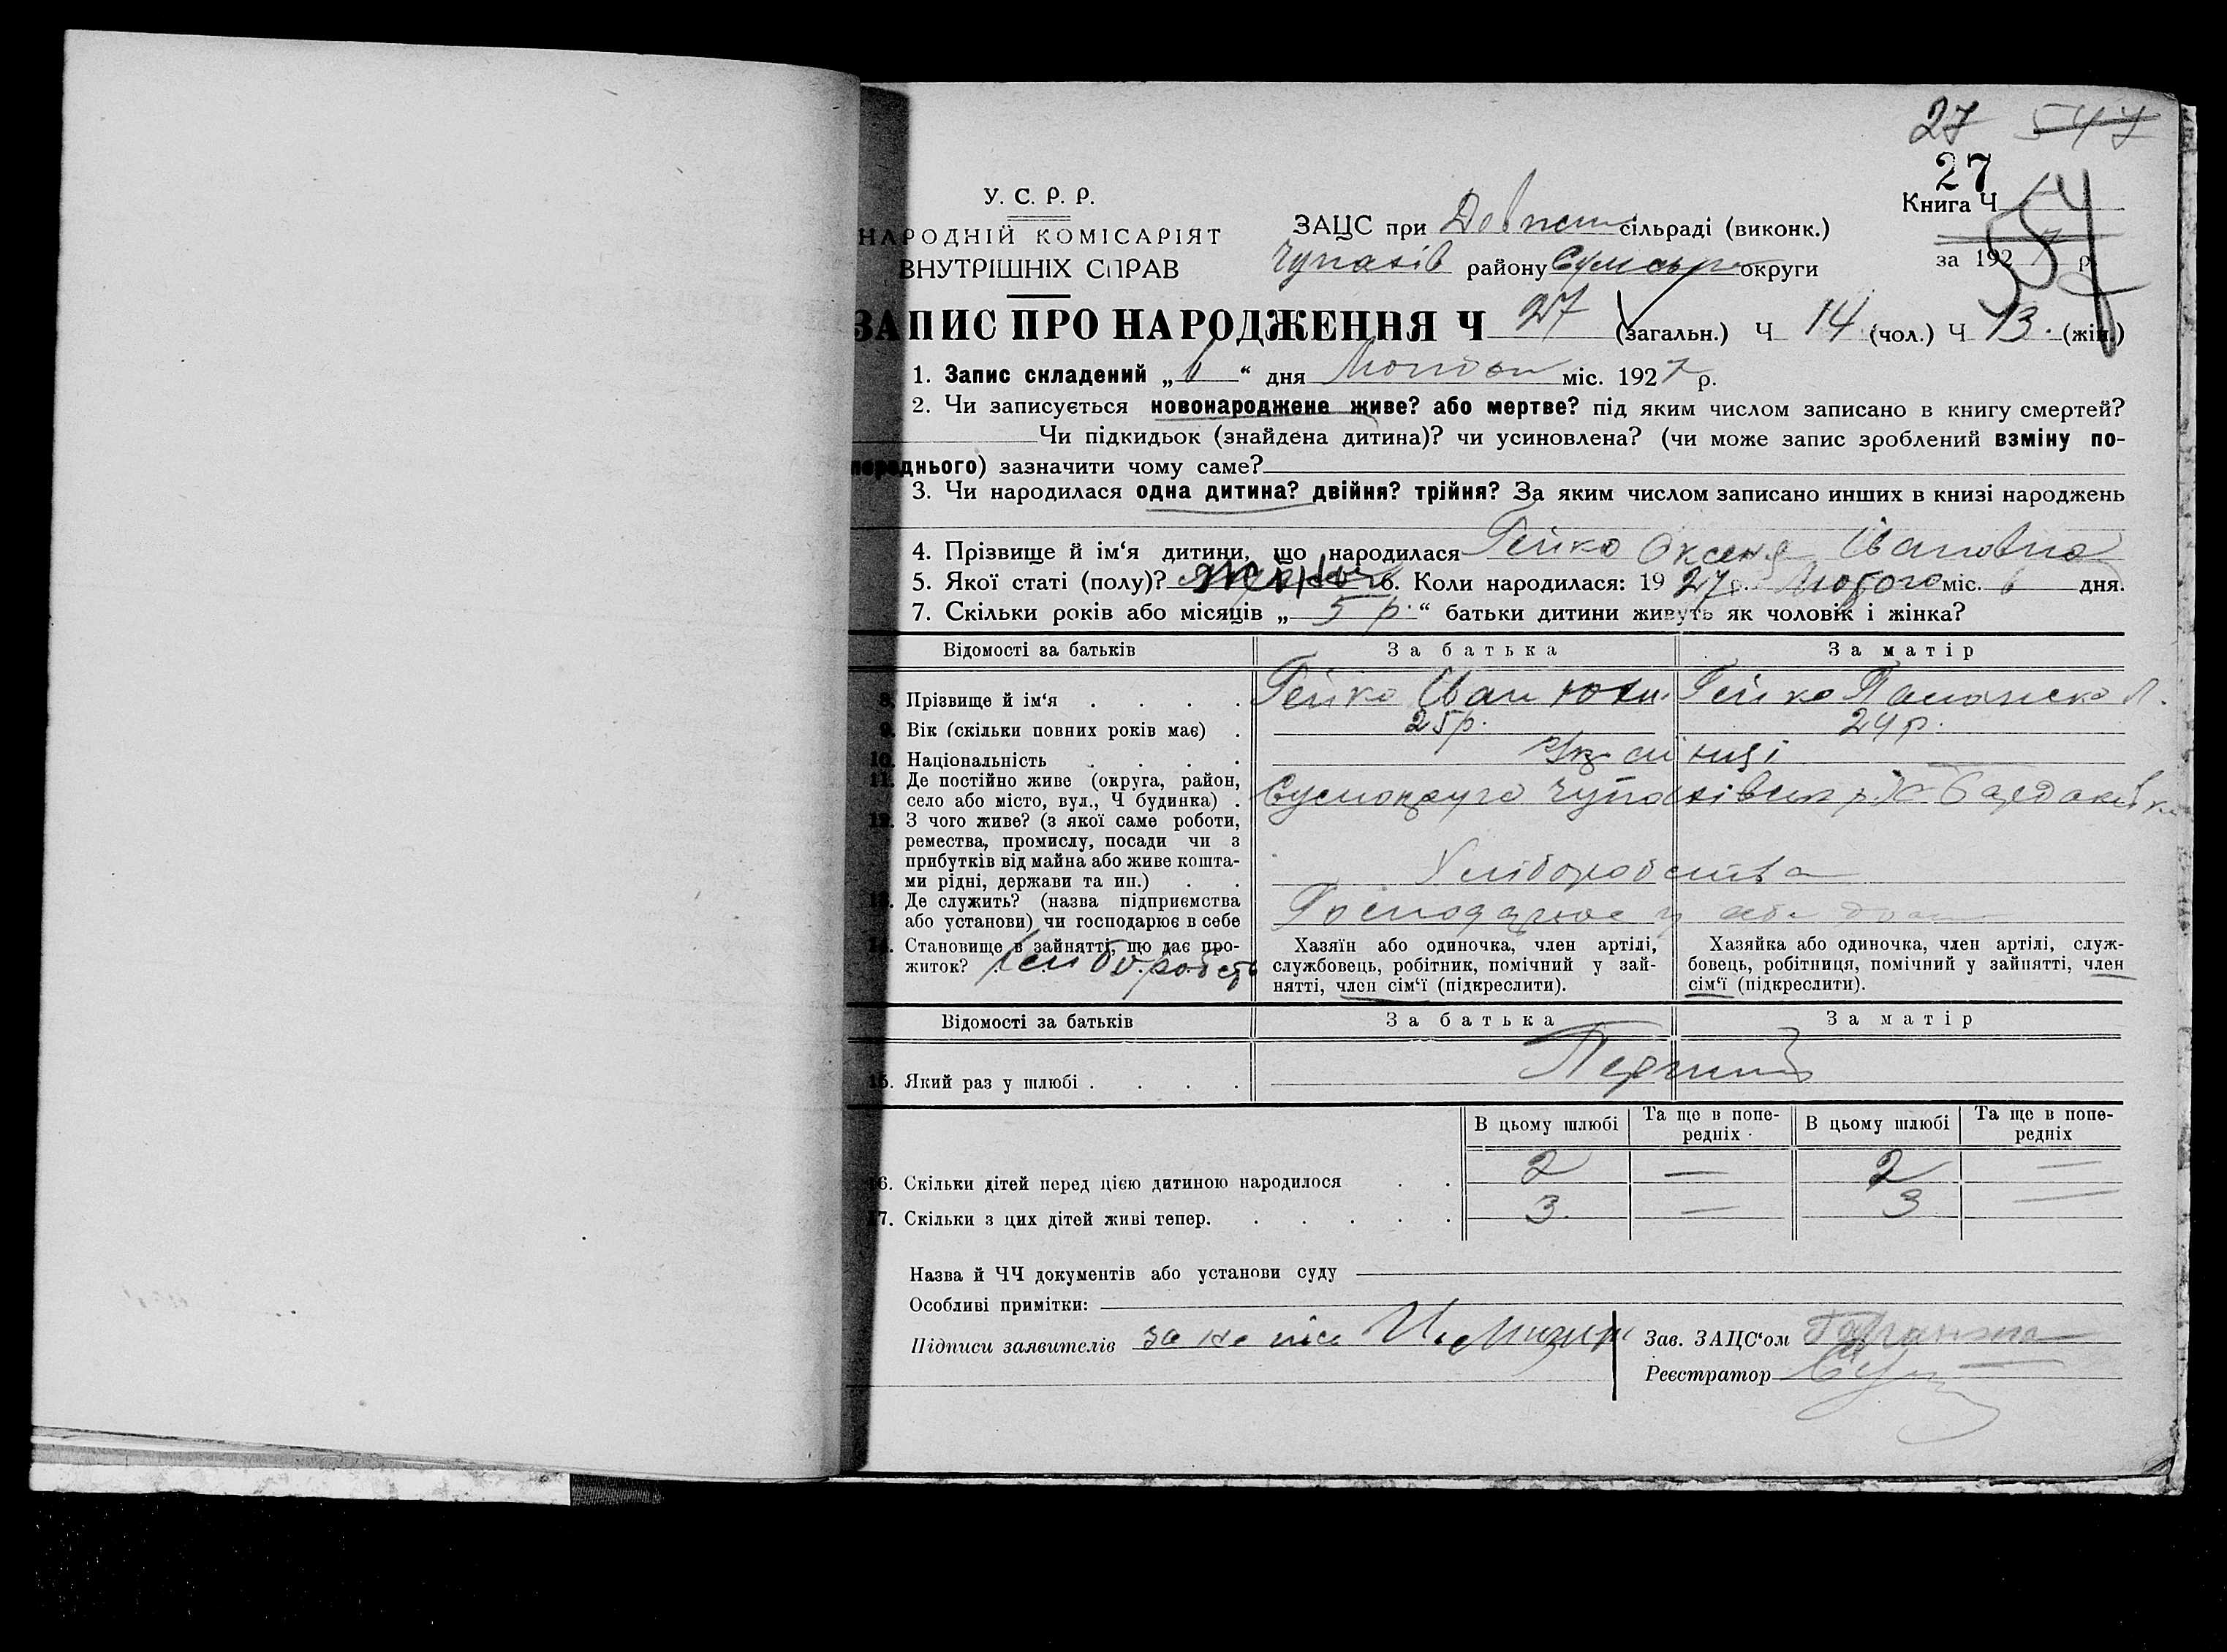 27 547
27
У. С. Р. Р.
Книга Ч 54
НАРОДНІЙ КОМІСАРІЯТ
ЗАЦС при сільраді (виконк.)
ВНУТРІШНІХ СПРАВ
Чупахів району Сумської округи
за 1927 р.
ЗАПИС ПРО НАРОДЖЕННЯ Ч 27 (загальн.) Ч 14 (чол.) Ч 13. (жін.)
1. Запис складений „ “ дня міс. 1927 р.
2. Чи записується новонароджене живе? або мертве? під яким числом записано в книгу смертей?
Чи підкидьок (знайдена дитина)? чи усиновлена? (чи може запис зроблений взміну по-
переднього) зазначити чому саме?
3. Чи народилася одна дитина? двійня? трійня? За яким числом записано инших в книзі народжень
4. Прізвище й ім‘я дитини, що народилася Гейко Оксеня Івановна
5. Якої статі (полу)? 6. Коли народилася: 1927 р. Лютого міс. 6 дня.
7. Скільки років або місяців „ 5 р. “ батьки дитини живуть як чоловік і жінка?
Відомості за батьків За батька За матір
8. Прізвище й ім‘я . . . . Гейко Іван Гейко
9. Вік (скільки повних років має) . 25 р. 24 р.
10. Національність . . . . Українці
11. Де постійно живе (округа, район,
село або місто, вул., Ч будинка) . Сумокруга
12. З чого живе? (з якої саме роботи,
ремества, промислу, посади чи з
прибутків від майна або живе кошта-
ми рідні, держави та ин.) . . Хліборобства
13. Де служить? (назва підприємства
або установи) чи господарює в себе Господарює у себе дома
14. Становище в зайнятті, що дає про-
житок? Хлібороб
Хазяїн або одиночка, член артілі,
службовець, робітник, помічний у зай-
нятті, член сім‘ї (підкреслити).
Хазяйка або одиночка, член артілі, служ-
бовець, робітниця, помічний у зайнятті, член
сім‘ї (підкреслити).
Відомості за батьків За батька За матір
15. Який раз у шлюбі . . . . Перший
В цьому шлюбі Та ще в попе-
редніх В цьому шлюбі Та ще в попе-
редніх
16. Скільки дітей перед цією дитиною народилося . . 2 — 2 —
17. Скільки з цих дітей живі тепер. . . . . . 3. — 3 —
Назва й ЧЧ документів або установи суду
Особливі примітки:
Підписи заявителів Зав. ЗАЦС‘ом
Реєстратор